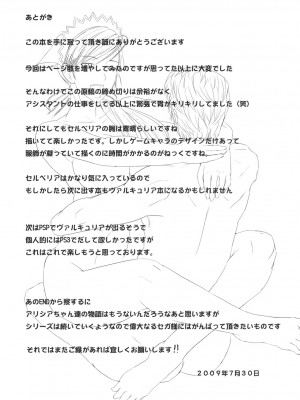 あとがき
この本を手に取って頂き誠にありがとうございます
今回はページ数を増やしてみたのですが思ってた以上に大変でした
そんなわけでこの原稿の締め切りには余裕がなく
アシスタントの仕事をしてる以上に緊張で胃がキリキリしてました（笑）
それにしてもセルベリアの胸は素晴らしいですね
描いてて楽しかったです。しかしゲームキャラのデザインだけあって
服飾が凝っていて描くのに時間がかかるのがねっくですね。
セルベリアはかなり気に入っているので
もしかしたら次に出す本もヴァルキュリア本になるかもしれません
次はPSPでヴァルキュリアが出るそうで
個人的にはPS3でだして欲しかったですが
これはこれで楽しもうと思っております。
あのENDから察するに
アリシアちゃん達の物語はもうないんだろうなあと思いますが
シリーズは続いていくようなので偉大なるセガ様にはがんばって頂きたいものです
それではまたご縁があれば宜しくお願いします!!
2009年7月30日